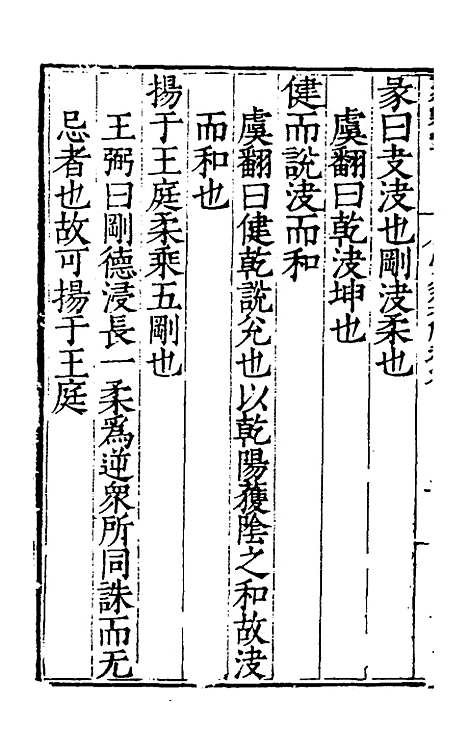 彖曰夬決也剛決柔也
虞翻曰乾決坤也
健而說決而和
虞翻曰健乾說兊也以乾陽獲陰之和故決
而和也
揚于王庭柔乘五剛也
王弼曰剛德浸長一柔爲逆衆所同誅而无
忌者也故可揚于王庭